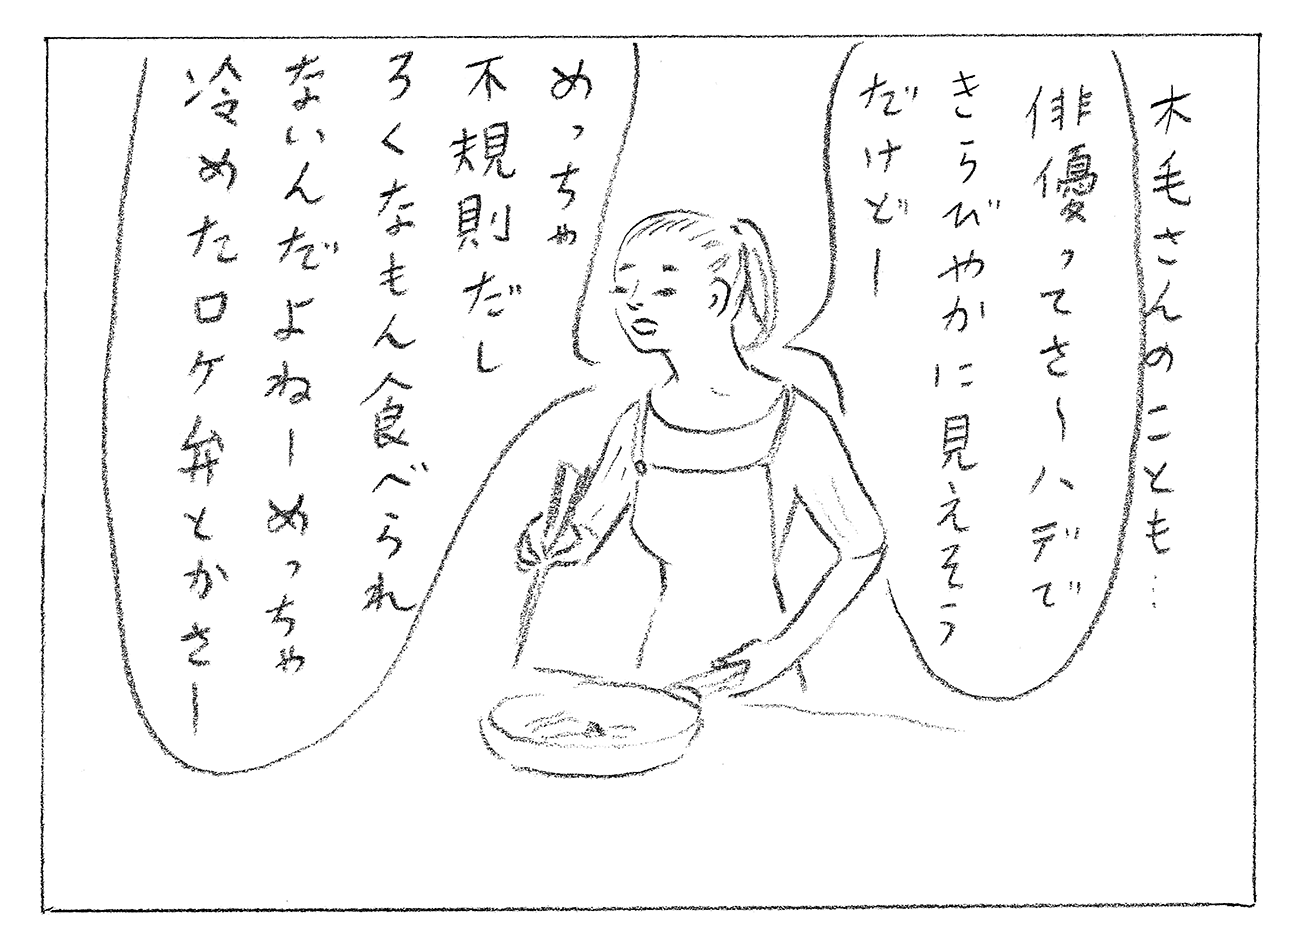 木毛さんのことも…
俳優ってさーハデで
きらびやかに見えそう
だけどー
めっちゃ
不規則だし
ろくなもん食べられ
ないんだよねーめっちゃ
冷めたロケ弁とかさー